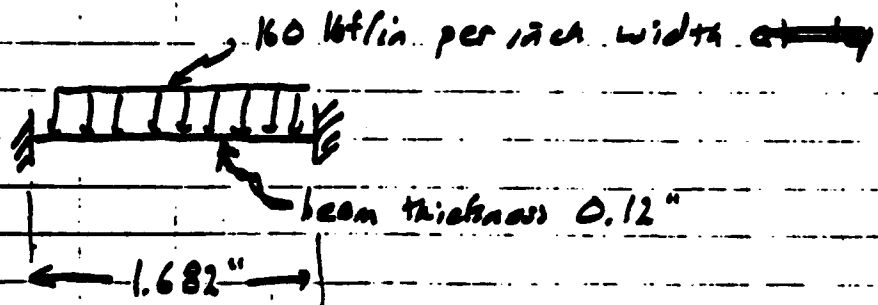 160 lbf/in per inch width
beam thickness 0.12"
1.682"